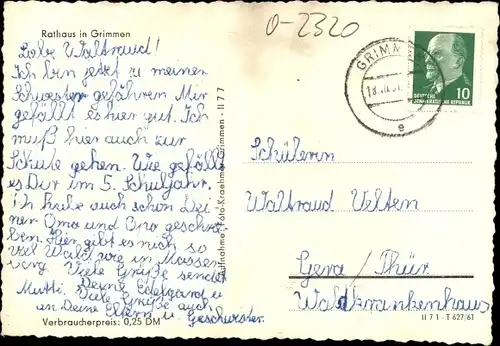 Rathaus in Grimmen
0-2320
Liebe Waltraud!
Ich bin jetzt zu meiner
Schwester gefahren. Mir
gefällt es hier gut. Ich
muß hier auch zur
Schule gehen. Wie gefällt
es Dir im 5. Schuljahr.
ich habe auch schon Dei-
ner Oma und Opa geschrie-
ben. Hier gibt es nich so
viel Wald wie in Massen
berg. Viele Grüße sendet
Mutti. Deine Edelgard u.
Viele Grüße auch
an Deine Eltern u. Geschwister.
Verbraucherpreis: 0,25 DM
Aufnahme: Foto-Kraehmer, Grimmen - II 7 7
GRIMMEN
18.11.
e
DEUTSCHE
DEMOKRATISCHE REPUBLIK
10
Schülerin
Waltraud Velten
Gera / Thür.
Waldkrankenhaus
II 7 1 - T 627/61